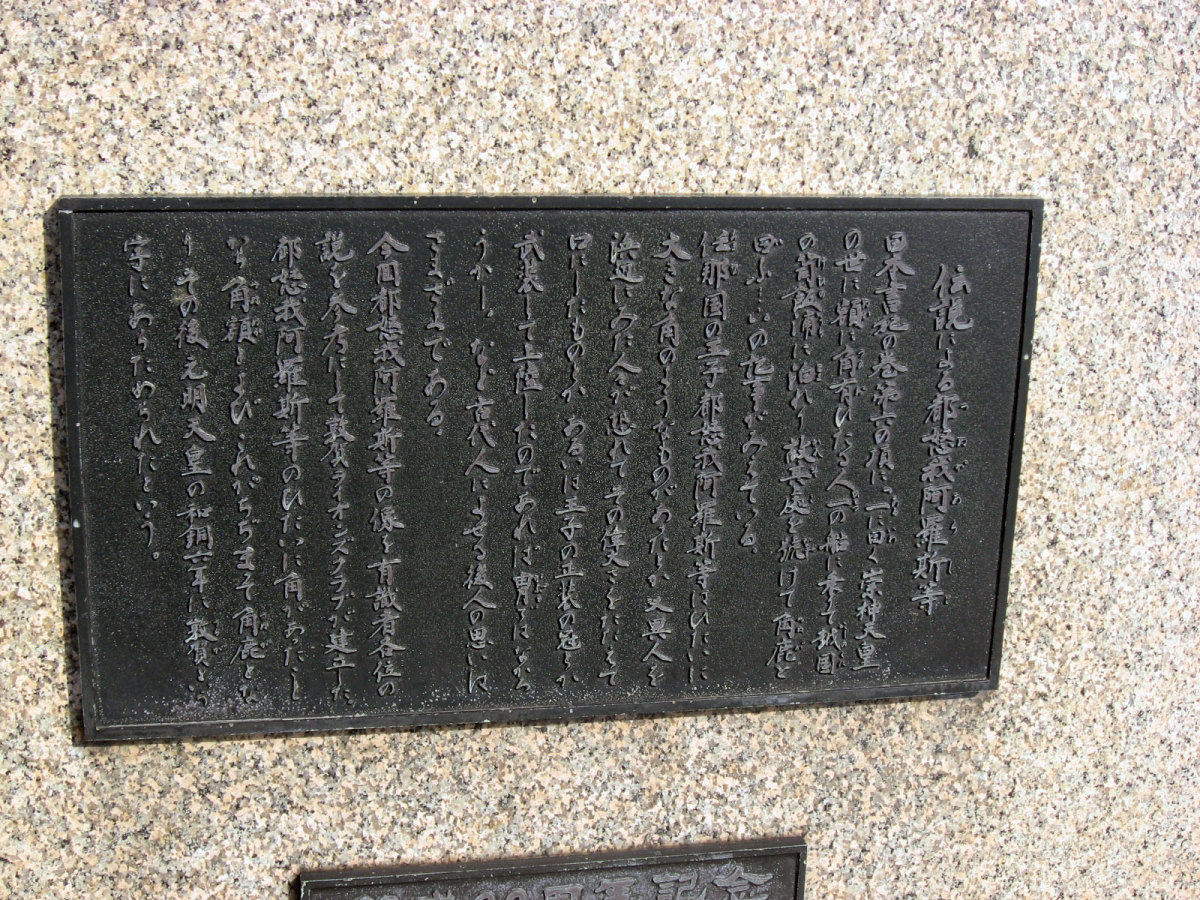 伝説による都怒我阿羅斯等
日本書紀の巻第六の項に、一に曰く崇神天皇
の世に額に角有ひたる人一の船に乗て越国
の笥飯浦に泊れり故其処を號けて角鹿と
曰ふ……の記事がみえている。
任那国の王子都怒我阿羅斯等はひたいに
大きな角のようなものがあたが又異人を
浜辺にみた人が恐れてその偉大さをたたえて
口にしたものか あるいは王子の正装の冠か
武装して上陸したのであれば冑ではなか
うかし、など古代人によせる後人の思いは
さまざまである。
今回都怒我阿羅斯等の像を有散者各位の
説を参考にして敦賀ライオンズクラブが建立した
都怒我阿羅斯等のひたいに角があったこと
から角額とよび これがちぢまって角鹿とな
り その後元明天皇の和銅六年に敦賀という
字にあらためられたという。
周年記念